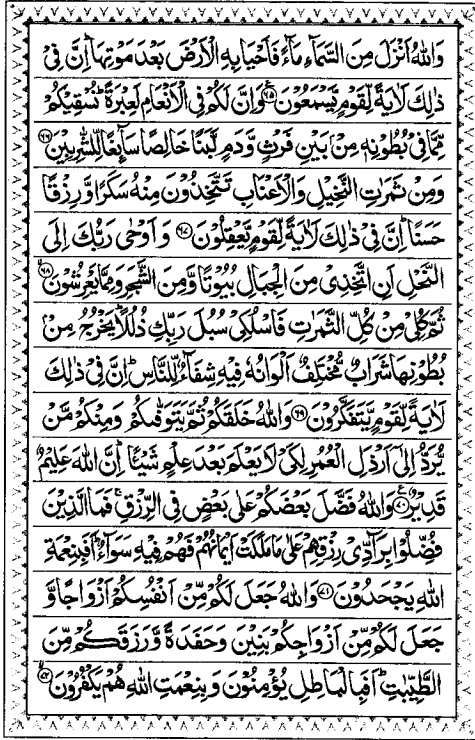 وَاللّٰهُ اَنْزَلَ مِنَ السَّمَآءِ مَآءً فَاَحْيَا بِهِ الْاَرْضَ بَعْدَ مَوْتِهَا ؕ اِنَّ فِیْ
ذٰلِكَ لَاٰیَةً لِّقَوْمٍ یَّسْمَعُوْنَ ﴿۶۵﴾ وَاِنَّ لَكُمْ فِی الْاَنْعَامِ لَعِبْرَةً ؕ نُسْقِیْكُمْ
مِّمَّا فِیْ بُطُوْنِهٖ مِنْۢ بَیْنِ فَرْثٍ وَّدَمٍ لَّبَنًا خَالِصًا سَآئِغًا لِّلشّٰرِبِیْنَ ﴿۶۶﴾
وَمِنْ ثَمَرٰتِ النَّخِیْلِ وَالْاَعْنَابِ تَتَّخِذُوْنَ مِنْهُ سَكَرًا وَّرِزْقًا
حَسَنًا ؕ اِنَّ فِیْ ذٰلِكَ لَاٰیَةً لِّقَوْمٍ یَّعْقِلُوْنَ ﴿۶۷﴾ وَاَوْحٰی رَبُّكَ اِلَی
النَّحْلِ اَنِ اتَّخِذِیْ مِنَ الْجِبَالِ بُیُوْتًا وَّمِنَ الشَّجَرِ وَمِمَّا یَعْرِشُوْنَ ﴿۶۸﴾
ثُمَّ كُلِیْ مِنْ كُلِّ الثَّمَرٰتِ فَاسْلُكِیْ سُبُلَ رَبِّكِ ذُلُلًا ؕ یَخْرُجُ مِنْۢ
بُطُوْنِهَا شَرَابٌ مُّخْتَلِفٌ اَلْوَانُهٗ فِیْهِ شِفَآءٌ لِّلنَّاسِ ؕ اِنَّ فِیْ ذٰلِكَ
لَاٰیَةً لِّقَوْمٍ یَّتَفَكَّرُوْنَ ﴿۶۹﴾ وَاللّٰهُ خَلَقَكُمْ ثُمَّ یَتَوَفّٰىكُمْ وَمِنْكُمْ مَّنْ
یُّرَدُّ اِلٰۤی اَرْذَلِ الْعُمُرِ لِكَیْ لَا یَعْلَمَ بَعْدَ عِلْمٍ شَیْئًا ؕ اِنَّ اللّٰهَ عَلِیْمٌ
قَدِیْرٌ ﴿۷۰﴾ وَاللّٰهُ فَضَّلَ بَعْضَكُمْ عَلٰی بَعْضٍ فِی الرِّزْقِ ۚ فَمَا الَّذِیْنَ
فُضِّلُوْا بِرَآدِّیْ رِزْقِهِمْ عَلٰی مَا مَلَكَتْ اَیْمَانُهُمْ فَهُمْ فِیْهِ سَوَآءٌ ؕ اَفَبِنِعْمَةِ
اللّٰهِ یَجْحَدُوْنَ ﴿۷۱﴾ وَاللّٰهُ جَعَلَ لَكُمْ مِّنْ اَنْفُسِكُمْ اَزْوَاجًا وَّ
جَعَلَ لَكُمْ مِّنْ اَزْوَاجِكُمْ بَنِیْنَ وَحَفَدَةً وَّرَزَقَكُمْ مِّنَ
الطَّیِّبٰتِ ؕ اَفَبِالْبَاطِلِ یُؤْمِنُوْنَ وَبِنِعْمَتِ اللّٰهِ هُمْ یَكْفُرُوْنَ ﴿۷۲﴾